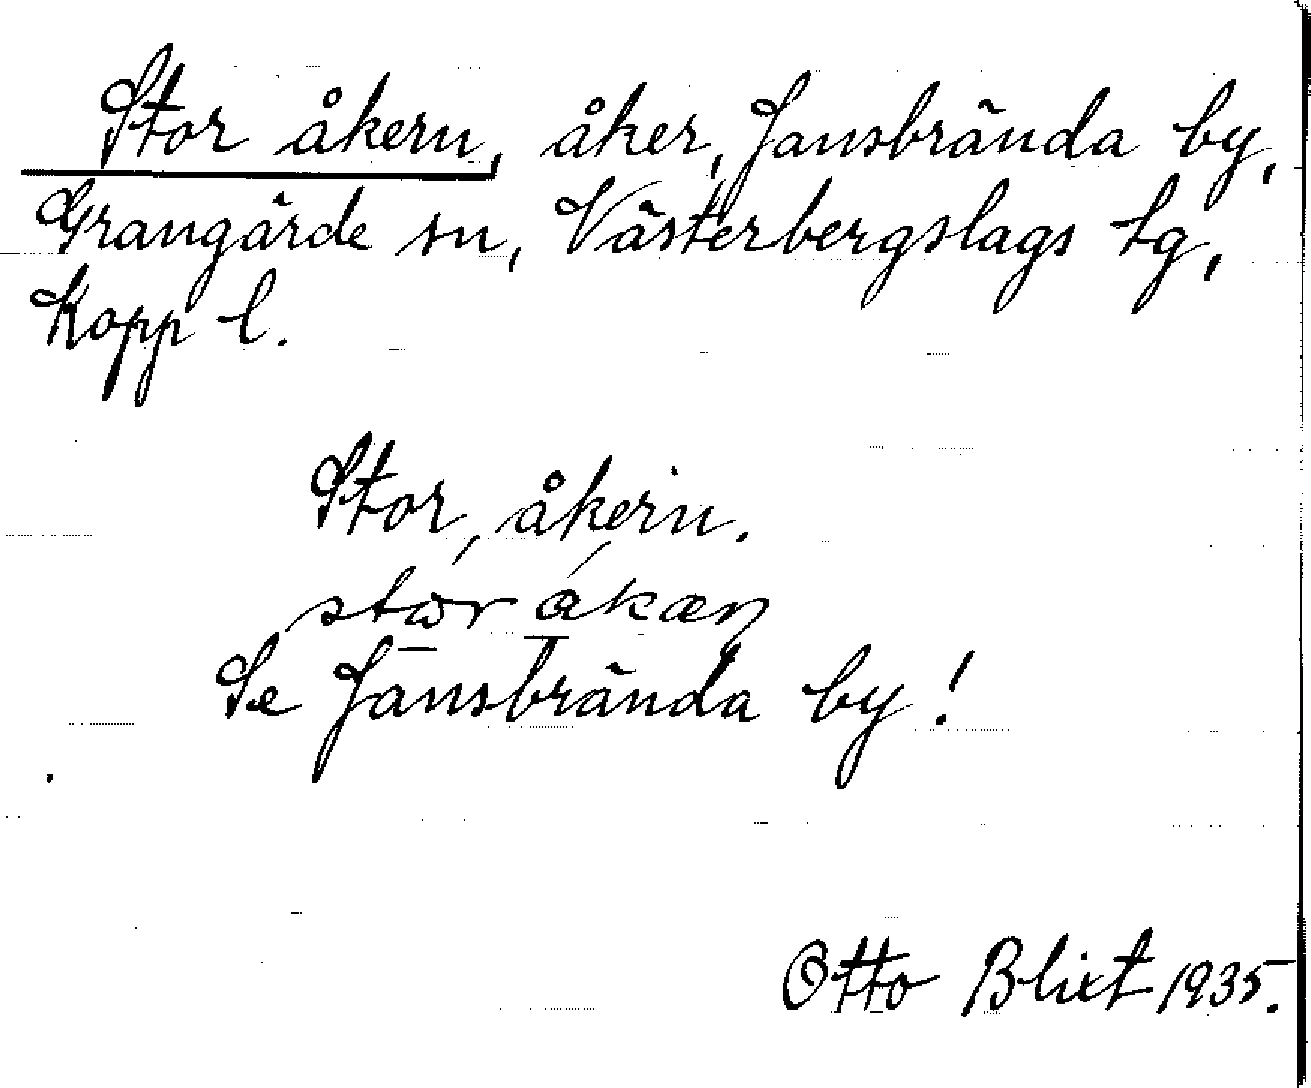 Stor åkern, åker, Jansbrända by,
Grangärde sn, Västerbergslags tg,
Kopp l.
Stor, åkerin.
stor åkæn
Se Jansbrända by!
Otto Blixt 1935.